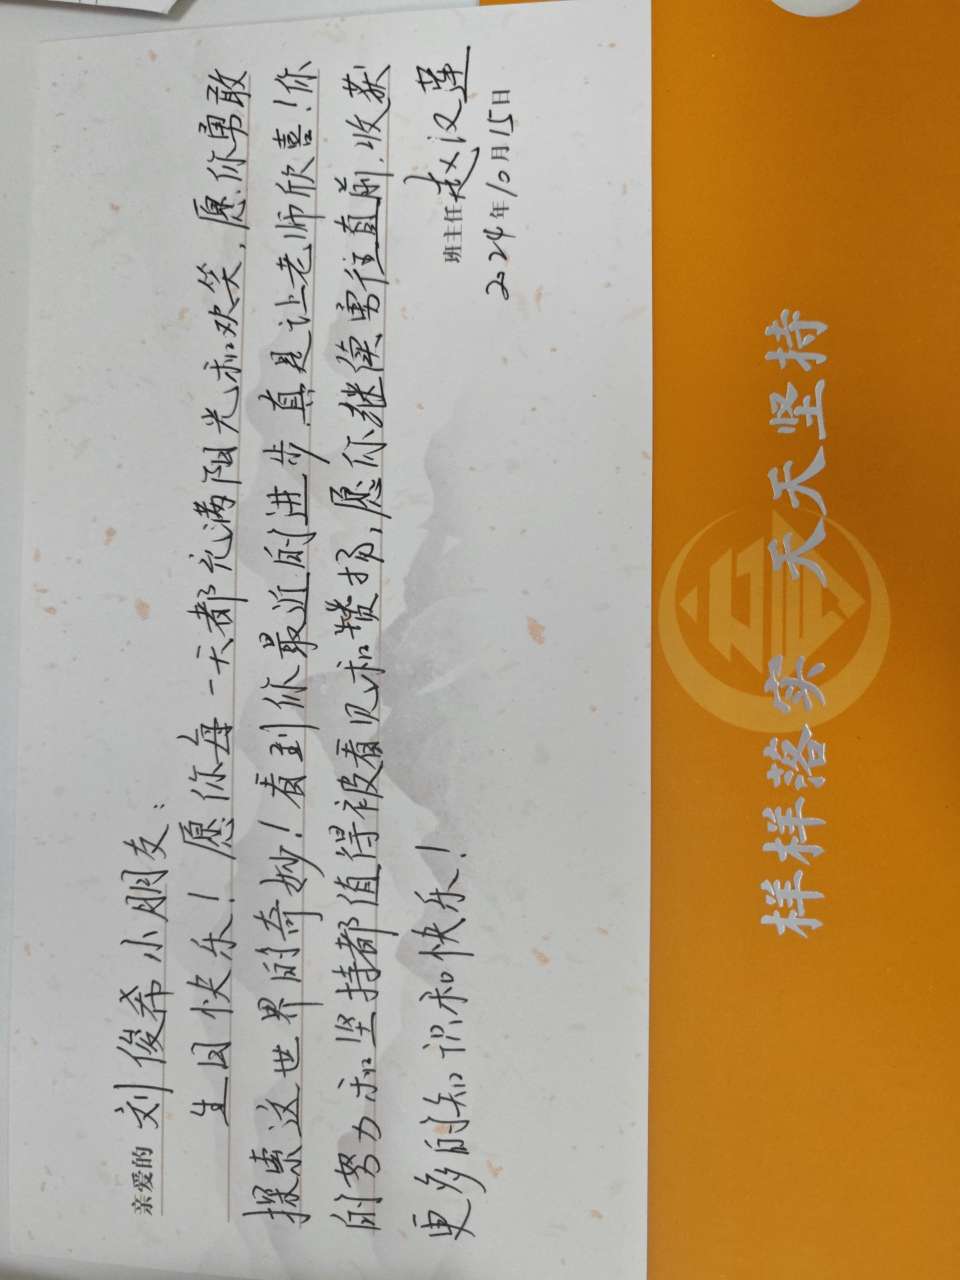 亲爱的 刘俊希小朋友：
生日快乐！愿你每一天都充满阳光和欢笑，愿你勇敢
探索这世界的奇妙！看到你最近的进步，真是让老师欣喜！你
的努力和坚持都值得被看见和赞扬，愿你继续勇往直前，收获
更多的知识和快乐！
班主任 赵汉莲
2024年10月15日
样样落实 天天坚持